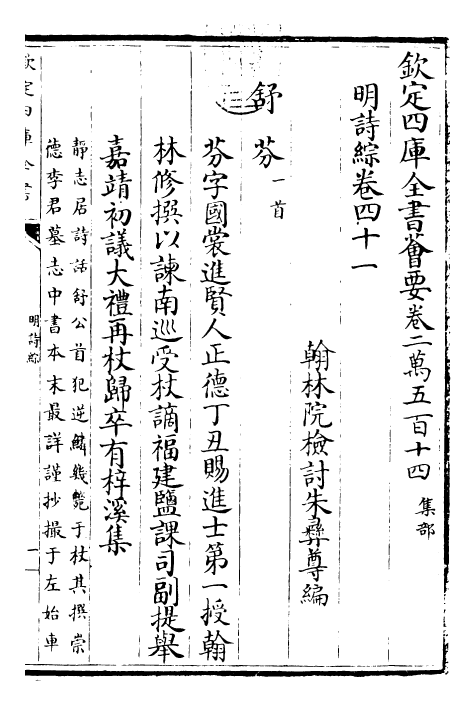 欽定四庫全書薈要卷二萬五百十四 集部
明詩綜卷四十一
翰林院檢討朱彝尊編
舒芬一首
芬字國裳進賢人正德丁丑賜進士第一授翰
林修撰以諫南巡受杖謫福建鹽課司副提舉
嘉靖初議大禮再杖歸卒有梓溪集
靜志居詩話舒公首犯逆鱗幾斃于杖其撰崇
德李君墓志中書本末最詳謹抄撮于左始車
欽定四庫全書
明詩綜
一